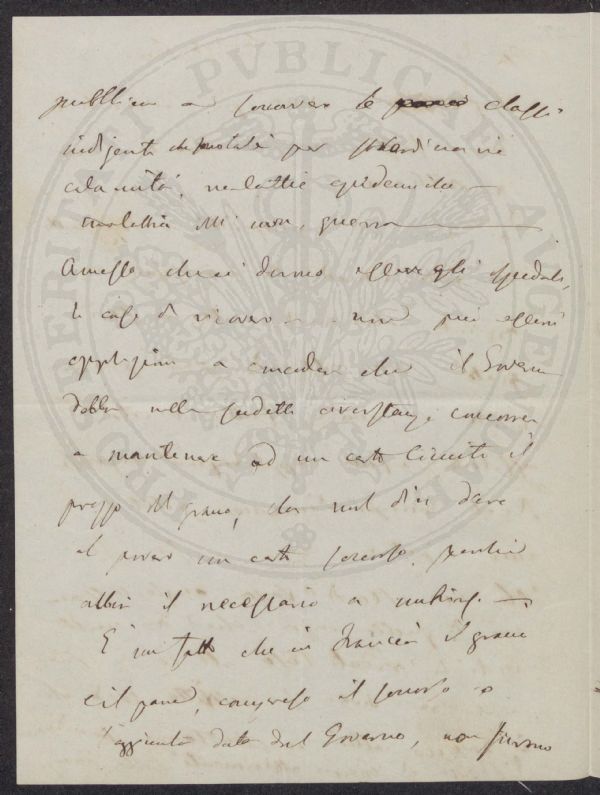 pubblica a soccorrere le classi
indigenti per straordinarie
calamità, malattie epidemiche
malattia guerra
Ammesso che ci devono essere gli spedali,
le case di ricovero non può esservi
a che il Governo
debba nelle sudette circostanze concorrere
a mantenere ad un certo limite il
prezzo del grano, che vuol dire dare
al povero un certo soccorso, perchè
abbia il necessario a nutrirsi.
È un fatto che in Francia il grano
e il pane, compreso il soccorso o
l'aggiunta data dal Governo, non furono
PVBLICAE